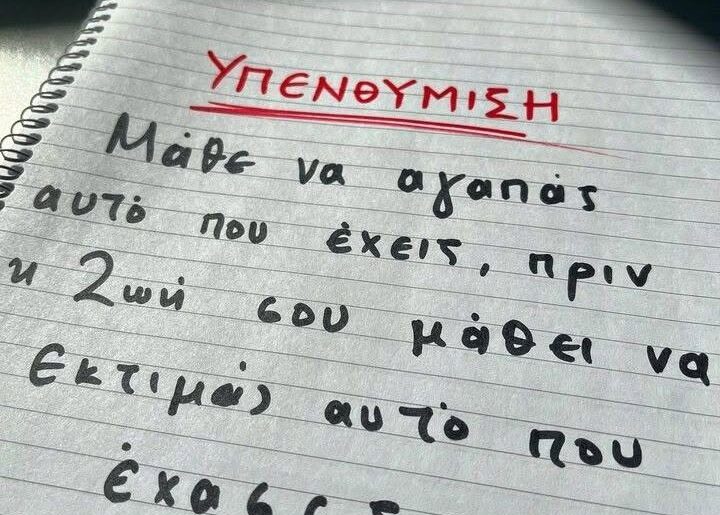 ΥΠΕΝΘΥΜΙΣΗ
Μάθε να αγαπάς
αυτό που έχεις, πριν
η ζωή σου μάθει να
εκτιμάς αυτό που
έχασες